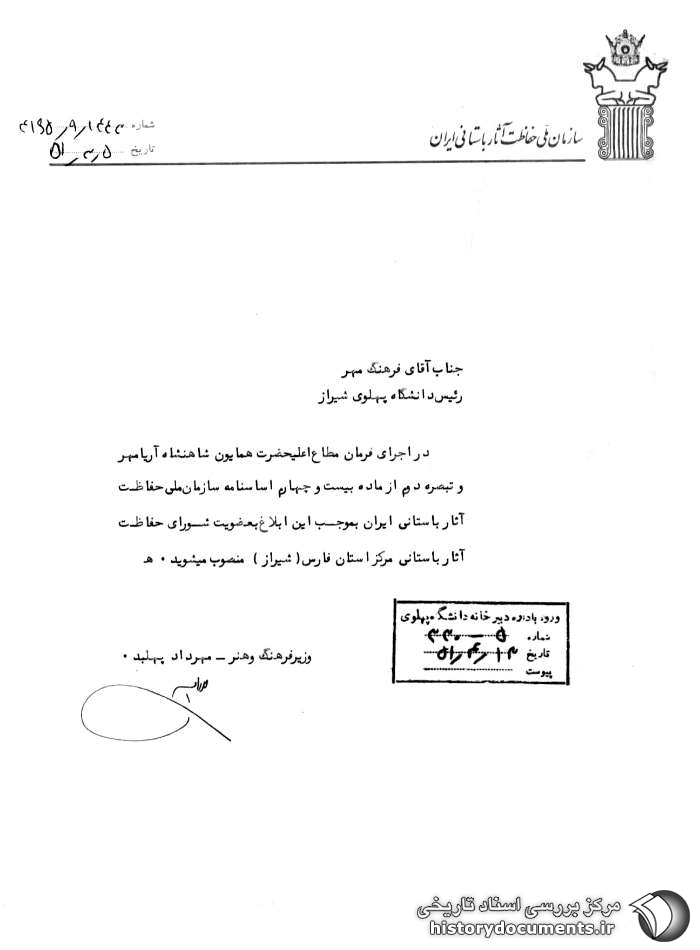 سازمان ملی حفاظت آثار باستانی ایران
شماره
تاریخ ۵۱٫۳٫۵
جناب آقای فرهنگ مهر
رئیس دانشگاه پهلوی شیراز
در اجرای فرمان مطاع اعلیحضرت همایون شاهنشاه آریامهر
و تبصره دوم از ماده بیست و چهارم اساسنامه سازمان ملی حفاظت
آثار باستانی ایران بموجب این ابلاغ بعضویت شورای حفاظت
آثار باستانی مرکز استان فارس ( شیراز ) منصوب میشوید ۰ ه
ورود باداره دبیرخانه دانشگاه پهلوی
شماره
تاریخ
پیوست
وزیر فرهنگ و هنر – مهرداد پهلبد ۰
مرکز بررسی اسناد تاریخی
historydocuments.ir